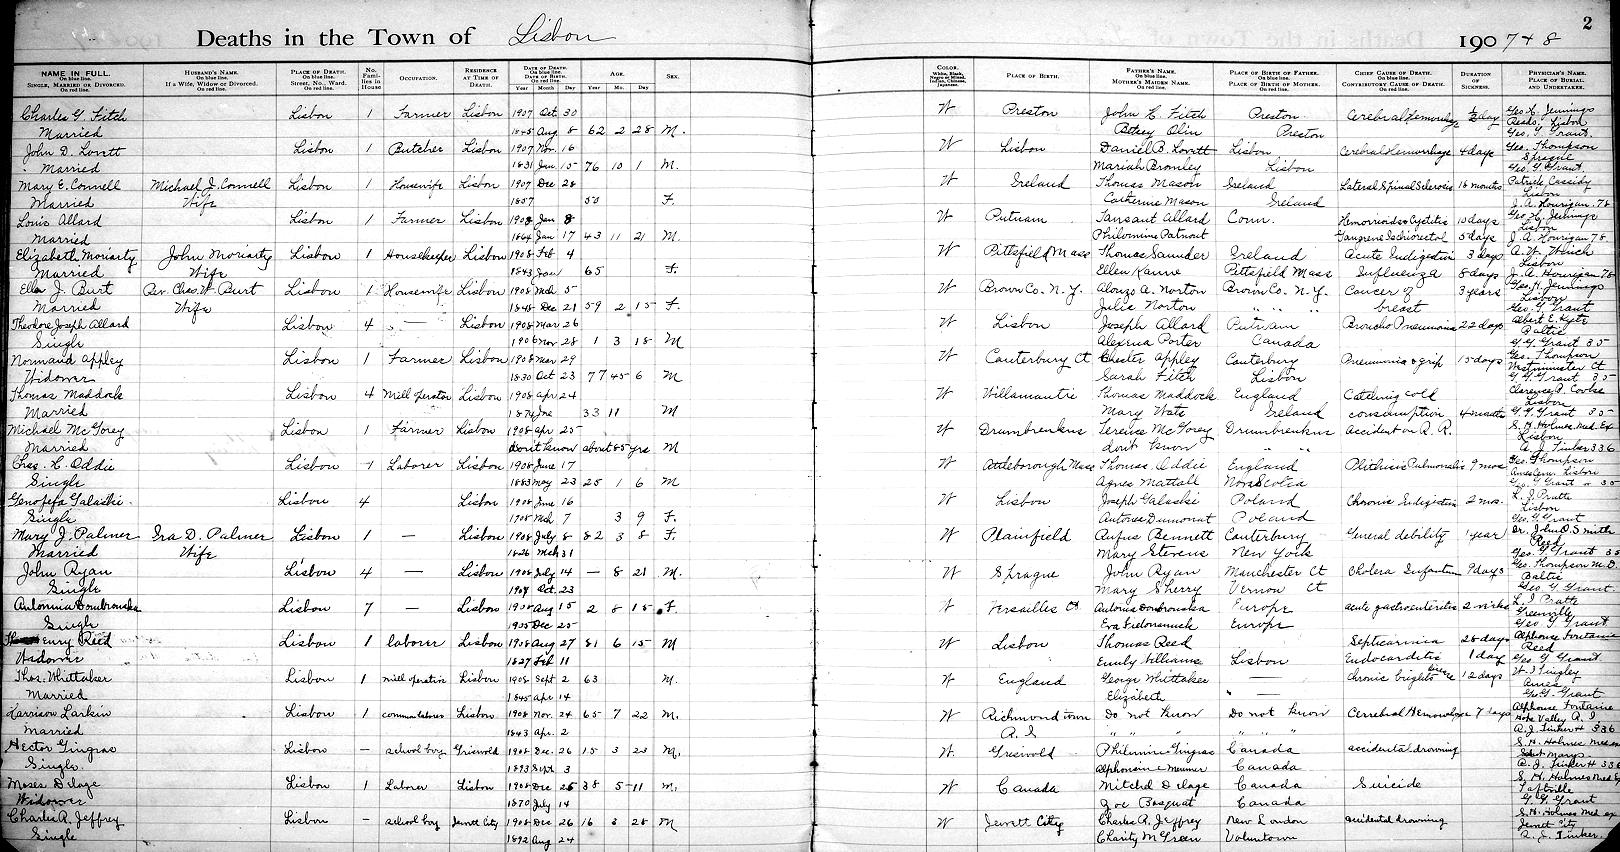 Deaths in the Town of Lisbon
2
190 7 & 8
NAME IN FULL. On blue line. SINGLE, MARRIED OR DIVORCED. On red line.
HUSBAND'S NAME. If a Wife, Widow or Divorced.
PLACE OF DEATH. On blue line. Street, No., Ward. On red line.
No. Families in House
OCCUPATION.
RESIDENCE AT TIME OF DEATH.
DATE OF DEATH. On blue line. DATE OF BIRTH. On red line. Year Month Day
AGE. Year Mo. Day
SEX.
COLOR.
PLACE OF BIRTH.
FATHER'S NAME. On blue line. MOTHER'S MAIDEN NAME. On red line.
PLACE OF BIRTH OF FATHER. On blue line. PLACE OF BIRTH OF MOTHER. On red line.
CHIEF CAUSE OF DEATH. On blue line. CONTRIBUTORY CAUSE OF DEATH. On red line.
DURATION OF SICKNESS.
PHYSICIAN'S NAME. PLACE OF BURIAL AND UNDERTAKER.
Charles G. Fitch Lisbon 1 Farmer Lisbon 1907 Oct 30 W Preston John C. Fitch Preston Cerebral Hemorrhage ½ day Geo. H. Jennings
Married 1845 Aug 8 62 2 28 M. Betsey Olin Preston Lisbon
Geo. G. Grant
John D. Lovett Lisbon 1 Butcher Lisbon 1907 Nov. 16 W Lisbon Daniel B. Lovett Lisbon Cerebral Hemorrhage 4 days Geo. Thompson
Married 1831 Jan 15 76 10 1 M. Mariah Bromley Lisbon Sprague
Geo. G. Grant
Mary E. Connell Michael J. Connell Lisbon 1 Housewife Lisbon 1907 Dec 28 W Ireland Thomas Mason Ireland Lateral Spinal Sclerosis 18 months Patrick Cassidy
Married Wife 1857 50 F. Catherine Mason Ireland Lisbon
J. A. Hourigan 78
Louis Allard Lisbon 1 Farmer Lisbon 1908 Jan 8 W Putnam Allard Conn. Hemorrhoids & Cystitis 10 days Geo. H. Jennings
Married 1864 Jan 17 43 11 21 M. Philomine Patnout Gangrene Ischiorectal 5 days Lisbon
J. A. Hourigan 78
Elizabeth Moriarty John Moriarty Lisbon 1 Housekeeper Lisbon 1908 Feb 4 W Pittsfield Mass Thomas Saunder Ireland Acute Indigestion 3 days
Married Wife 1843 Jan 65 F. Ellen Kanne Pittsfield Mass Influenza 8 days Lisbon
J. A. Hourigan 78
Ella J. Burt Rev. Chas. W. Burt Lisbon 1 Housewife Lisbon 1908 Mch 5 W Brown Co. N.Y. Alonzo A. Norton Brown Co. N.Y. Cancer of 3 years Geo. H. Jennings
Married Wife 1848 Dec 21 59 2 15 F. Julie Norton " " " breast Lisbon
Geo. G. Grant
Theodore Joseph Allard Lisbon 4 — Lisbon 1908 Mar 26 W Lisbon Joseph Allard Putnam Broncho Pneumonia 22 days Albert E. Kyte
Single 1906 Nov 28 1 3 18 M Porter Canada Baltic
G. G. Grant 35
Normand Appley Lisbon 1 Farmer Lisbon 1908 Mar 29 W Canterbury Ct Chester Appley Canterbury Pneumonia & grip 15 days Geo. Thompson
Widower 1830 Oct 23 77 45 6 M Sarah Fitch Lisbon Westminster Ct
G. G. Grant 35
Thomas Maddock Lisbon 4 Mill operator Lisbon 1908 Apr 24 W Willamantic Thomas Maddock England Catching cold
Married 1874 Jne 33 11 M Mary Wate Ireland consumption 4 months Lisbon
G. G. Grant 35
Michael McGorey Lisbon 1 Farmer Lisbon 1908 apr 25 W Drumbrenkus Terence McGorey Drumbrenkus accident on R. R. S. H. Holmes Med. Ex
Married don't know about 85 yrs M don't know " " Lisbon
A. J. Tinker 336
Chas. H. Oddie Lisbon 1 Laborer Lisbon 1908 June 17 W Attleborough Mass Thomas Oddie England Phthisis Pulmonalis 9 mos. Geo. Thompson
Single 1883 May 23 25 1 6 M Agnes Mattall Nova Scotia Ames Cem. Lisbon
Geo. G. Grant 35
Genofefa Galaskie Lisbon 4 Lisbon 1908 June 16 W Lisbon Joseph Galaskie Poland Chronic Indigestion 2 mos. L. I. Pratte
Single 1908 Mch 7 3 9 F. Poland Lisbon
Geo. G. Grant
Mary J. Palmer Ira D. Palmer Lisbon 1 — Lisbon 1908 July 8 82 3 8 F. W Plainfield Rufus Bennett Canterbury General debility 1 year Dr. John O. Smith
Married Wife 1826 Mch 31 Mary Stevens New York Reed
Geo. G. Grant 35
John Ryan Lisbon 4 — Lisbon 1908 July 14 — 8 21 M. W Sprague John Ryan Manchester Ct Cholera Infantum 9 days Geo. Thompson M.D.
Single 1907 Oct. 23 Mary Sherry Vernon Ct Baltic
Geo. G. Grant.
Antonnia Dombrouska Lisbon 7 — Lisbon 1908 Aug 15 2 8 15 F. W Versailles Ct Antonia Dombrouska Europe acute gastroenteritis 2 weeks L. I. Pratte
Single 1905 Dec 25 Eva Europe Greenville
Geo. G. Grant
Henry Reed Lisbon 1 laborer Lisbon 1908 Aug 27 81 6 15 M W Lisbon Thomas Reed Septicaemia 28 days Alphonse Fontaine
Widower 1827 Feb 11 Emily Williams Lisbon Endocarditis 1 day Reed
Geo G Grant
Thos. Whittaker Lisbon 1 mill operative Lisbon 1908 Sept 2 63 M. W England George Whittaker — chronic brights 12 days W. T. Tingley
Married 1845 apr 14 Elizabeth — Ames
Geo G. Grant
Harrison Larkin Lisbon 1 Lisbon 1908 Nov. 24 65 7 22 M. W Richmond town Do not know Do not know Cerebral Hemorrhage 7 days Alphonse Fontaine
Married 1843 Apr. 2 R. I " " " " " " Hope Valley R. I
A. J. Tinker 336
Hector Gingras Lisbon — school boy Griswold 1908 Dec. 26 15 3 23 M. W. Griswold Philemine Gingras Canada accidental drowning S. H. Holmes Med ex
Single 1893 Sept 3 Canada Saint Marys
A. J. Tinker 336
Moses Delage Lisbon 1 Laborer Lisbon 1908 Dec 25 38 5 11 M. W Canada Mitchel Delage Canada Suicide S. H. Holmes Med Ex
Widower 1870 July 14 Zoe Bosquat Canada Taftville
G. G. Grant
Charles R. Jeffrey Lisbon — school boy Jewett City 1908 Dec 26 16 3 28 M W Jewett City Charles R. Jeffrey New London accidental drowning S. H. Holmes Med ex
Single 1892 Aug 24 Charity McGreen Voluntown Jewett City
A. J. Tinker.